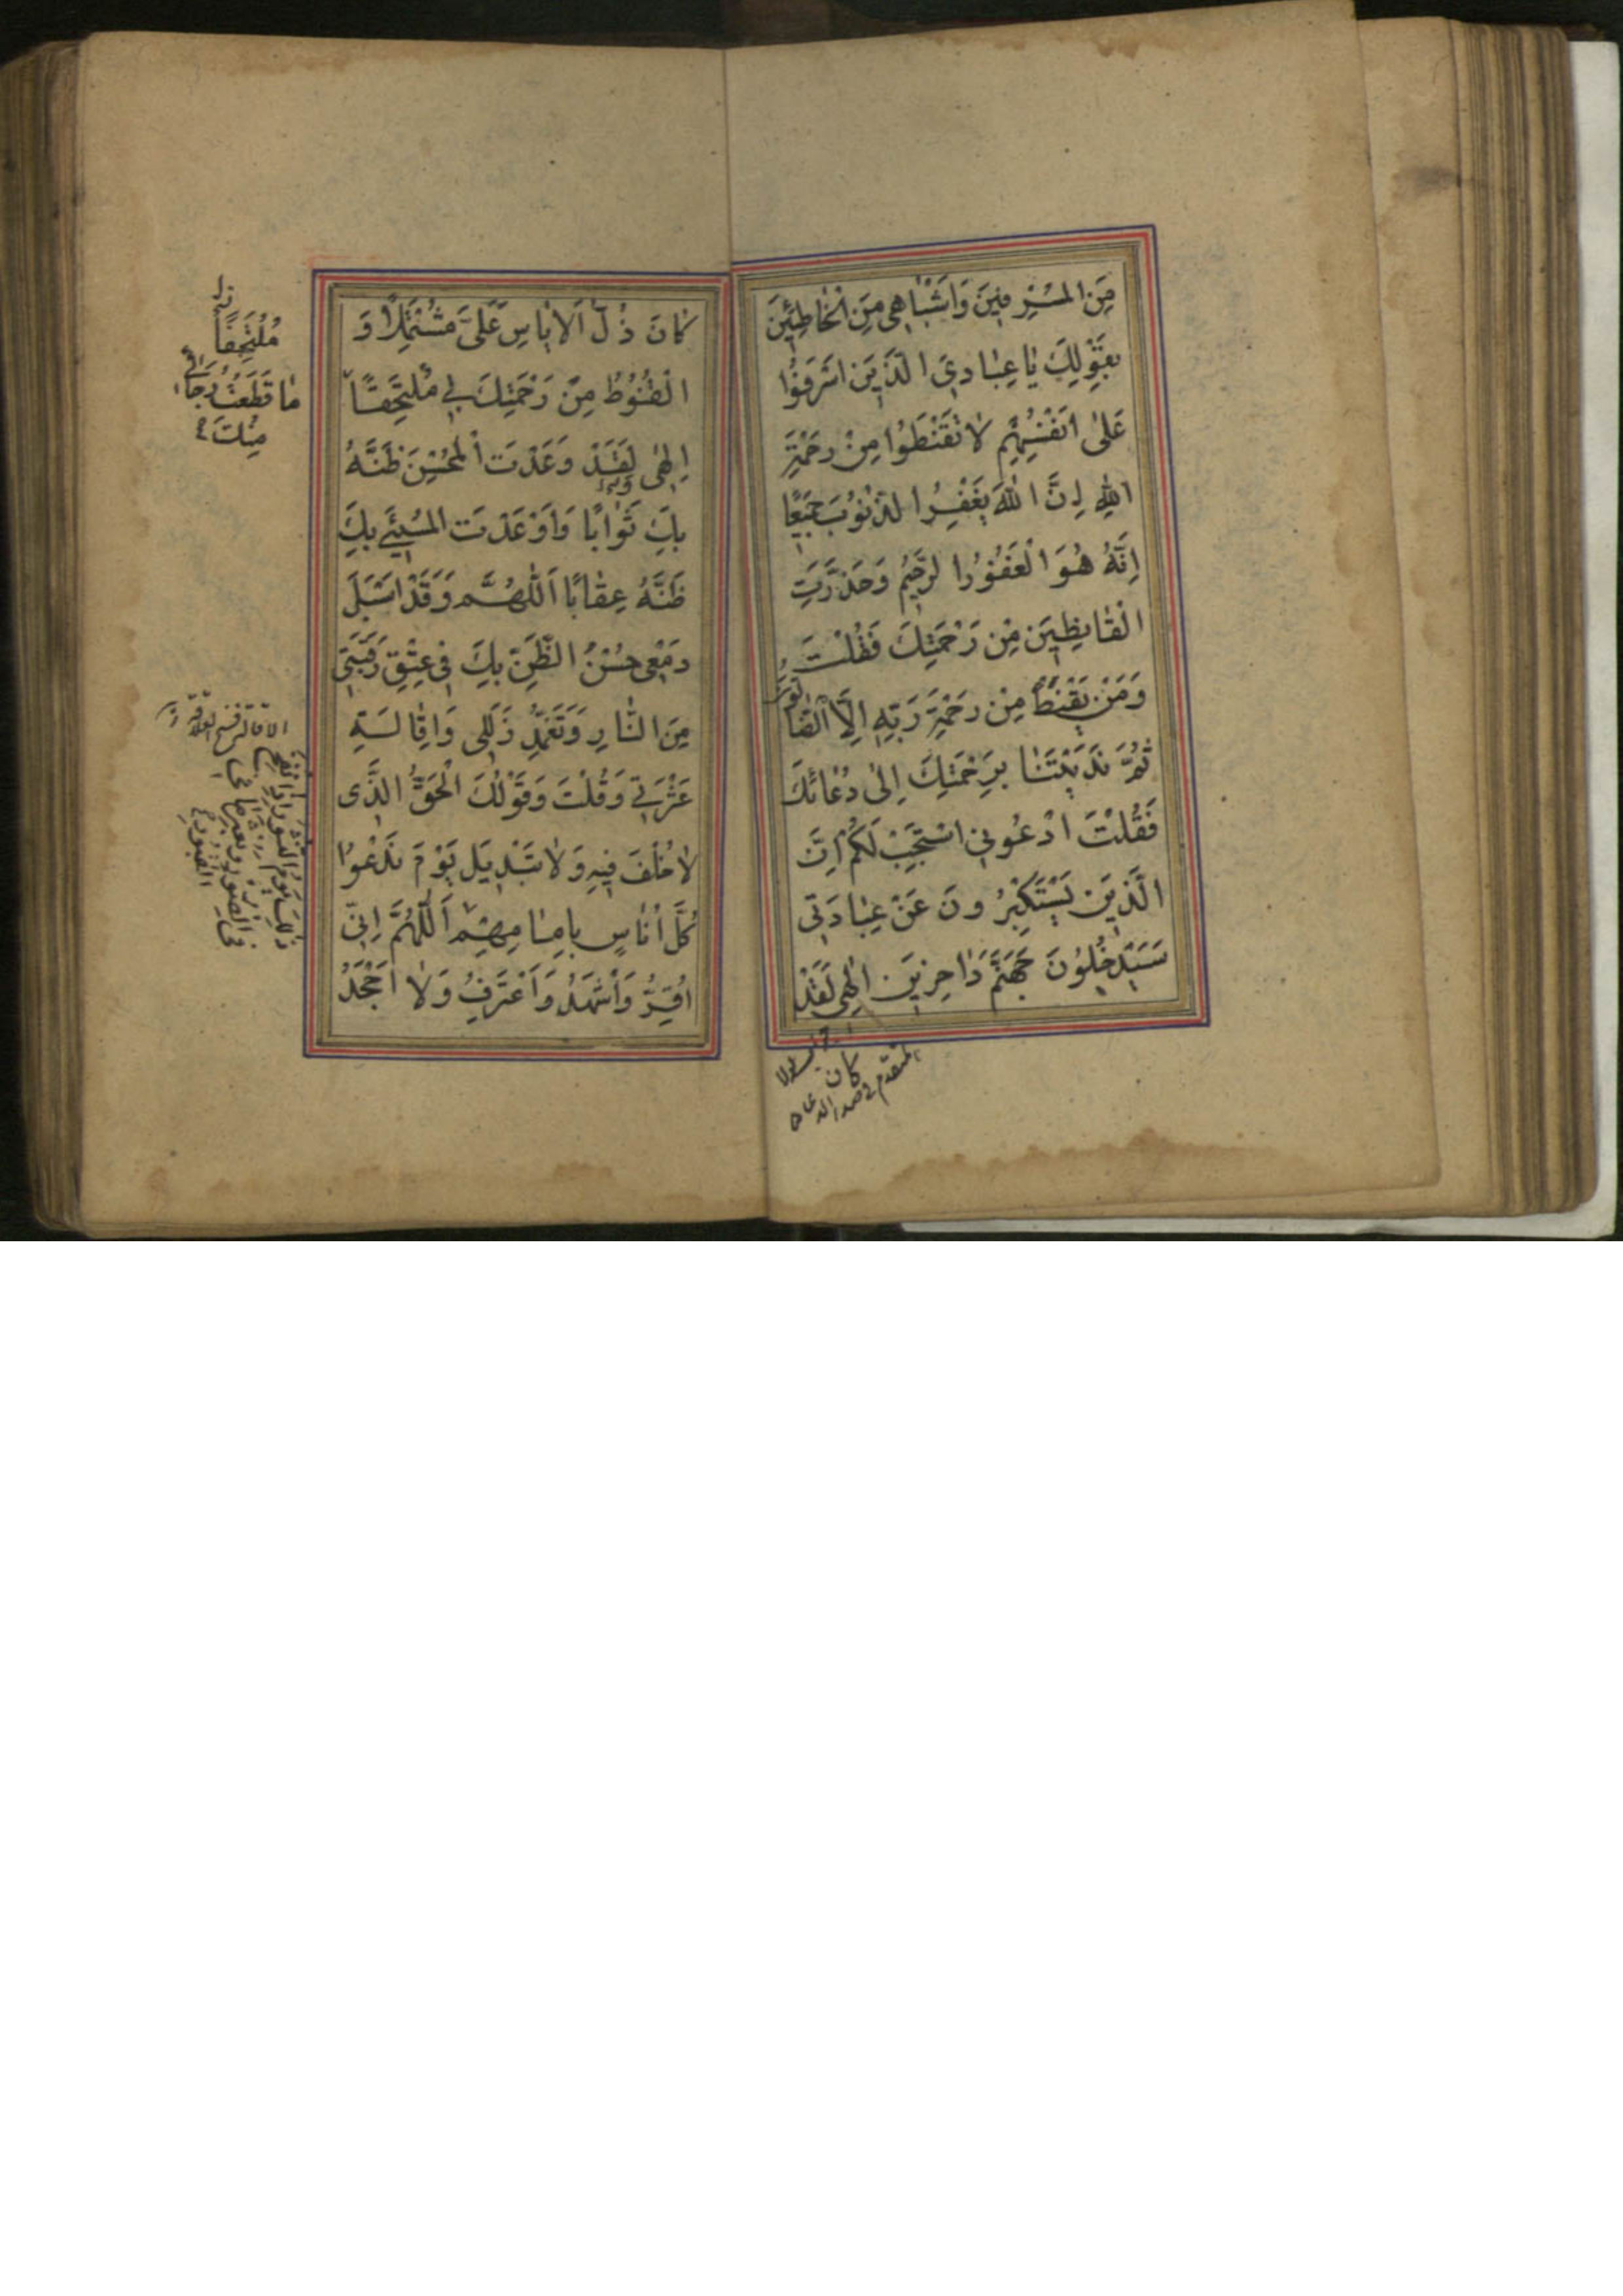 مِنَ الْمُسْرِفِينَ وَاَشْبٰاهِی مِنَ الْخٰاطِئِينَ
بِقَوْلِكَ يٰا عِبٰادِيَ الَّذِينَ اَسْرَفُوا
عَلىٰ اَنْفُسِهِمْ لٰا تَقْنَطُوا مِنْ رَحْمَةِ
اللهِ اِنَّ اللهَ يَغْفِرُ الذُّنُوبَ جَمِيعًا
اِنَّهُ هُوَ الْغَفُورُ الرَّحِيمُ وَحَذَّرْتَ
الْقٰانِطِينَ مِنْ رَحْمَتِكَ فَقُلْتَ
وَمَنْ يَقْنَطُ مِنْ رَحْمَةِ رَبِّهِ اِلَّا الضّٰالُّونَ
ثُمَّ نَدَبْتَنٰا بِرَحْمَتِكَ اِلىٰ دُعٰائِكَ
فَقُلْتَ ادْعُونِی اَسْتَجِبْ لَكُمْ اِنَّ
الَّذِينَ يَسْتَكْبِرُونَ عَنْ عِبٰادَتِی
سَيَدْخُلُونَ جَهَنَّمَ دٰاخِرِينَ اِلٰهِی لَقَدْ
كان
المتقدم فی صدر الدعاء
كٰانَ ذُلُّ الْاِيٰاسِ عَلَیَّ مُشْتَمِلًا وَ
الْقُنُوطُ مِنْ رَحْمَتِكَ بِی مُلْتَحِفًا
اِلٰهِی لَقَدْ وَعَدْتَ الْمُحْسِنَ ظَنَّهُ
بِكَ ثَوٰابًا وَاَوْعَدْتَ الْمُسِیءَ بِكَ
ظَنَّهُ عِقٰابًا اَللّٰهُمَّ وَقَدْ اَسْبَلَ
دَمْعِی حُسْنُ الظَّنِّ بِكَ فِی عِتْقِ رَقَبَتِی
مِنَ النّٰارِ وَتَغَمُّدِ زَلَلِی وَاِقٰالَةِ
عَثْرَتِی وَقُلْتَ وَقَوْلُكَ الْحَقُّ الَّذِی
لٰا خُلْفَ فِيهِ وَلٰا تَبْدِيلَ يَوْمَ نَدْعُوا
كُلَّ اُنٰاسٍ بِاِمٰامِهِمْ اَللّٰهُمَّ اِنِّی
اُقِرُّ وَاَشْهَدُ وَاَعْتَرِفُ وَلٰا اَجْحَدُ
مُلْتَحِفًا
مٰا قَطَعْتُ رَجٰائِی
مِنْكَ
ذٰلِكَ يَوْمُ النُّشُورِ اِذَا نُفِخَ
فِی الصُّورِ وَبُعْثِرَ مٰا فِی
الْقُبُورِ